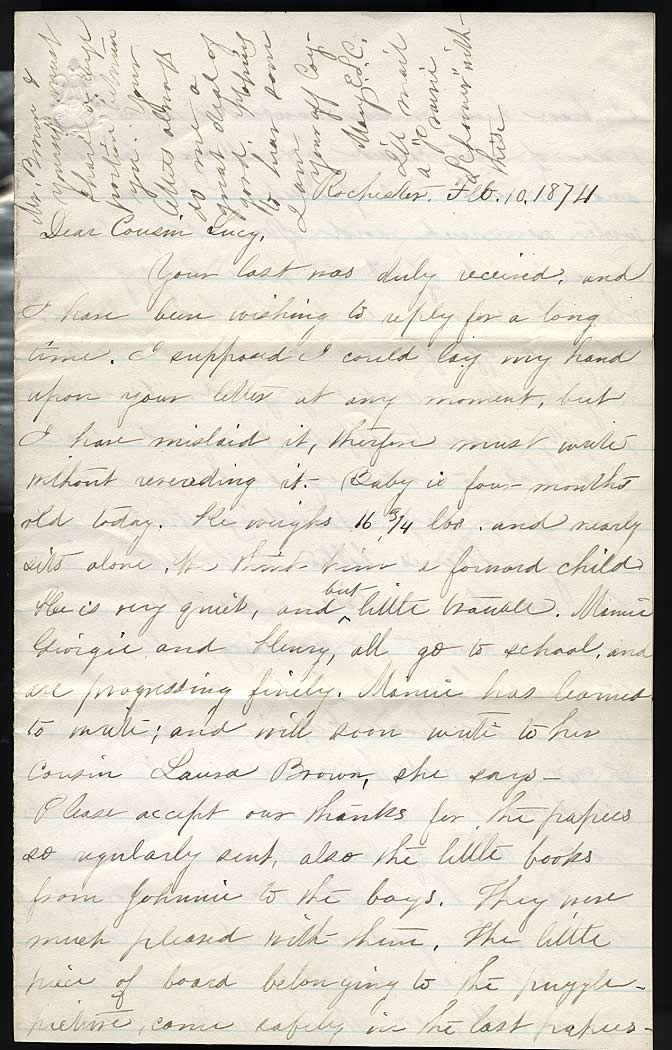 Mr. Brown &
yourself must
share a large
portion between
you. Your
letters always
do me a
great deal of
good. Hoping
to hear soon
I am
Yours aff Coz-
Mary E. C.
I'll mail
a
with-
this
Rochester. Feb. 10. 1874
Dear Cousin Lucy,
Your last was duly received, and
I have been wishing to reply for a long
time. I supposed I could lay my hand
upon your letter at any moment, but
I have mislaid it, therefore must write
without rereading it. Baby is four months
old today. He weighs 16 3/4 lbs. and nearly
sits alone. We think him a forward child
He is very quiet, and but little trouble. Mamie
Georgie and Henry, all go to school, and
are progressing finely. Mamie has learned
to write; and will soon write to her
Cousin Laura Brown, she says-
Please accept our thanks for the papers
so regularly sent, also the little books
from Johnnie to the boys. They were
much pleased with them. The little
piece of board belonging to the puzzle-
picture, came safely in the last papers-